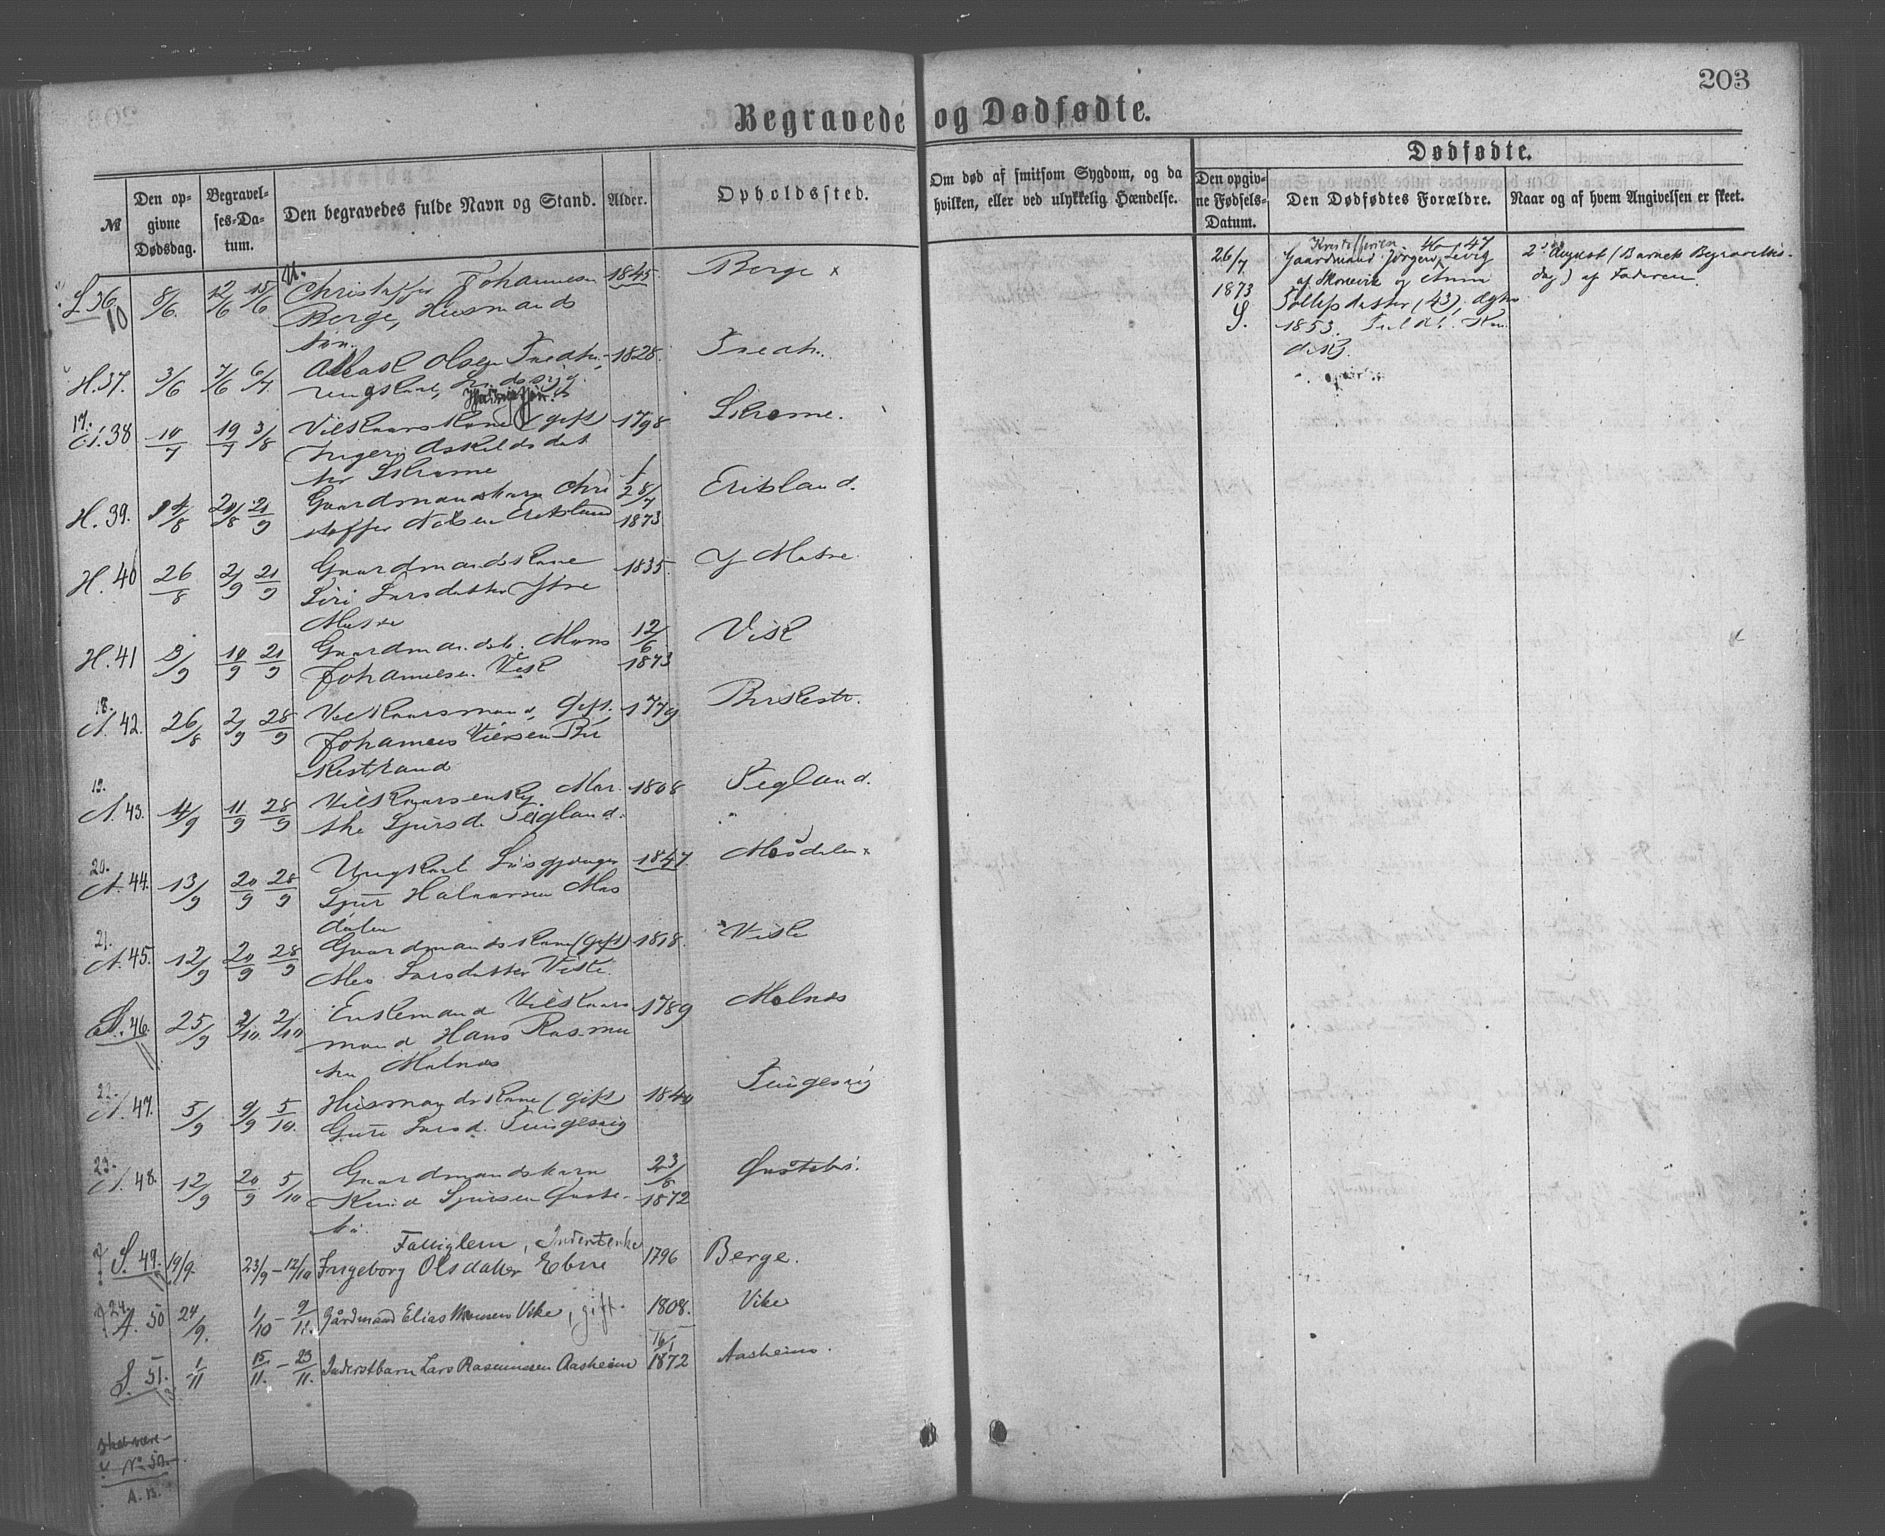 203
Begravede og Dødfødte.
№
Den opgivne Dødsdag.
Begravelses-Datum.
Den begravedes fulde Navn og Stand.
Alder.
Opholdssted.
Om død af smitsom Sygdom, og da hvilken, eller ved ulykkelig Hændelse.
Dødfødte.
Den opgivne Fødsels-Datum.
Den Dødfødtes Forældre.
Naar og af hvem Angivelsen er skeet.
S. 36 8/6 12/6 15/6 Christoffer Johannesen 1845 Berge x
10 Berge, Husmands
søn.
H. 37. 3/6 7/6 6/7 Aslak Olsen 1828.
Ungkarl
17.
A. 38 10/7 19/7 3/8 Vilkaarskone (gift 1798 Skrome.
Ingeri Askildsdat
ter Skrome
H. 39. 8/8 21/9 Gaardmandsbarn Chri 28/7 Eriksland.
stoffer Nilsen Eriksland 1873
H. 40 26/8 2/9 21/9 Gaardmandskone 1835. Y Matre
Siri Larsdatter Ytre
Matre
H. 41 3/9 10/9 21/9 Gaardmandsb. Mons 12/6 Visk
Johannesen Visk 1873
18.
A. 42. 26/8 2/9 28/9 Vilkaarsmand, gift. 1779 Birkestr.
Johannes Viersen Bir
kestrand
19.
A. 43. 4/9 11/9 28/9 Vilkaarsenke. Mar 1808 Tegland.
the Sjursd. Tegland.
20.
A. 44. 13/9 20/9 28/9 Ungkarl 1847 Mosdalen x
Sjur Halvorsen Mos
dalen
21.
A. 45. 12/9 20/9 28/9 Gaardmandskone (gift) 1818.
Larsdatter
S. 46. 25/9 2/10 Enkemand Vilkaars 1789 Molnes
mand Hans Rasmu
sen Molnes
22.
A. 47. 5/9 9/9 5/10. Husmandskone (gift 1840 Tungesvig
Guri Larsd. Tungesvig
23.
A. 48. 12/9 20/9 5/10 Gaardmandsbarn 23/8 Gustebø.
Knud Sjursen Guste 1872
bø.
Fattiglem, Inderstenke
S. 49. 19/9. 23/9 - 12/10 Ingeborg Olsdatter Ebne 1796 Berge.
24.
A. 50 24/9. 1/10 - 9/11. Gårdmand Elias Monsen Vike, gift. 1808. Vike
S. 51. 1/11 15/11. - 23/11. Inderstbarn Lars Rasmussen Aasheim 16/1 1872 Aasheim.
skal være
№ 50.
A. B.
Kristofferson 47
26/7 1873 S.
Gaardmand Jørgen
af Skonevik og Anna
Tollefsdatter (43)
1853.
2den August (Barnets Begravelses
dag) af Faderen.